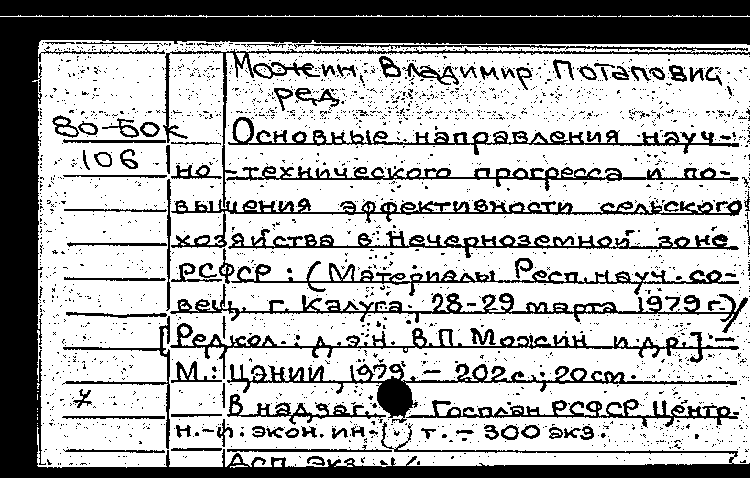 Можин, Владимир Потапович,
ред.
80-50к
Основные направления науч-
106
но-технического прогресса и по-
вышения эффективности сельского
хозяйства в Нечерноземной зоне
РСФСР : (Материалы Респ. науч. со-
вещ. г. Калуга, 28-29 марта 1979 г.)/
[Редкол.: д.э.н. В.П. Можин и др.] -
М.: ЦЭНИИ, 1979. - 202 с.; 20 см.
В надзаг.: Госплан РСФСР, Центр.
н.-и. экон. ин-т. - 300 экз.